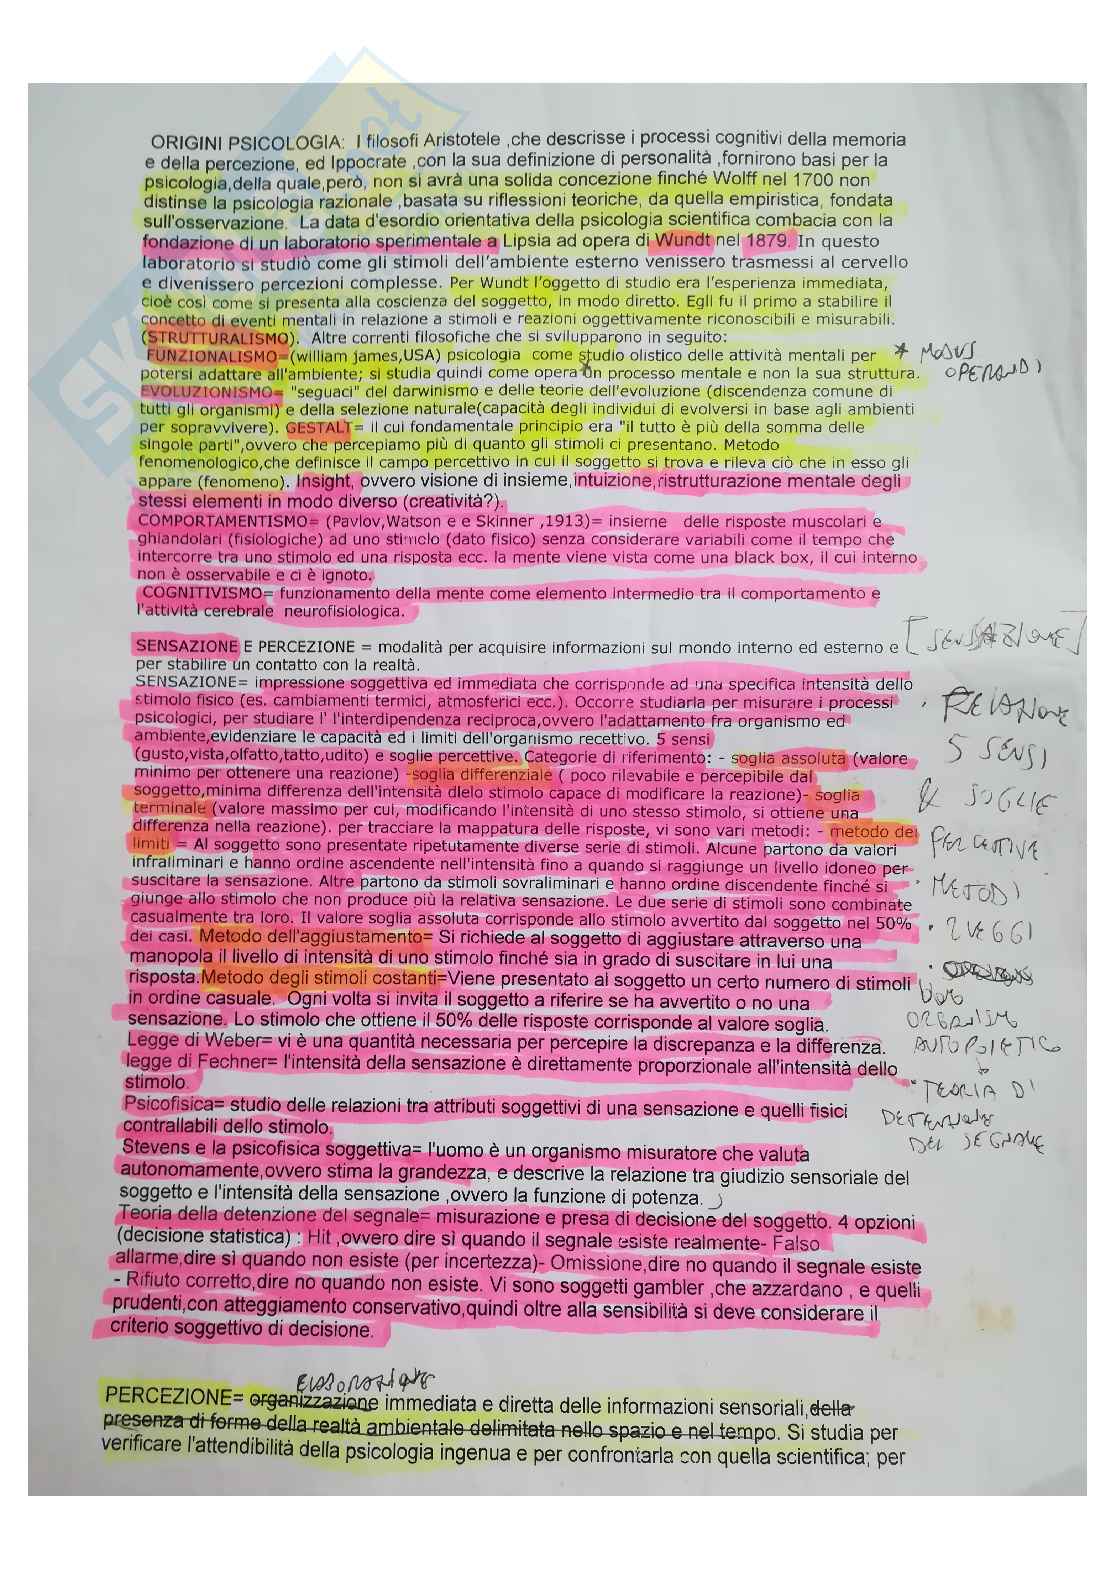 ORIGINI PSICOLOGIA: I filosofi Aristotele ,che descrisse i processi cognitivi della memoria
e della percezione, ed Ippocrate ,con la sua definizione di personalità ,fornirono basi per la
psicologia,della quale,però, non si avrà una solida concezione finché Wolff nel 1700 non
distinse la psicologia razionale ,basata su riflessioni teoriche, da quella empiristica, fondata
sull'osservazione. La data d'esordio orientativa della psicologia scientifica combacia con la
fondazione di un laboratorio sperimentale a Lipsia ad opera di Wundt nel 1879. In questo
laboratorio si studiò come gli stimoli dell'ambiente esterno venissero trasmessi al cervello
e divenissero percezioni complesse. Per Wundt l'oggetto di studio era l'esperienza immediata,
cioè così come si presenta alla coscienza del soggetto, in modo diretto. Egli fu il primo a stabilire il
concetto di eventi mentali in relazione a stimoli e reazioni oggettivamente riconoscibili e misurabili.
(STRUTTURALISMO). Altre correnti filosofiche che si svilupparono in seguito:
FUNZIONALISMO=(william james,USA) psicologia come studio olistico delle attività mentali per
potersi adattare all'ambiente; si studia quindi come opera un processo mentale e non la sua struttura.
* MODUS
OPERANDI
EVOLUZIONISMO= "seguaci" del darwinismo e delle teorie dell'evoluzione (discendenza comune di
tutti gli organismi) e della selezione naturale(capacità degli individui di evolversi in base agli ambienti
per sopravvivere). GESTALT= il cui fondamentale principio era "il tutto è più della somma delle
singole parti",ovvero che percepiamo più di quanto gli stimoli ci presentano. Metodo
fenomenologico,che definisce il campo percettivo in cui il soggetto si trova e rileva ciò che in esso gli
appare (fenomeno). Insight, ovvero visione di insieme,intuizione,ristrutturazione mentale degli
stessi elementi in modo diverso (creatività?).
COMPORTAMENTISMO= (Pavlov,Watson e e Skinner ,1913)= insieme delle risposte muscolari e
ghiandolari (fisiologiche) ad uno stimolo (dato fisico) senza considerare variabili come il tempo che
intercorre tra uno stimolo ed una risposta ecc. la mente viene vista come una black box, il cui interno
non è osservabile e ci è ignoto.
COGNITIVISMO= funzionamento della mente come elemento intermedio tra il comportamento e
l'attività cerebrale neurofisiologica.
SENSAZIONE E PERCEZIONE = modalità per acquisire informazioni sul mondo interno ed esterno e
per stabilire un contatto con la realtà.
[SENSAZIONE]
SENSAZIONE= impressione soggettiva ed immediata che corrisponde ad una specifica intensità dello
stimolo fisico (es. cambiamenti termici, atmosferici ecc.). Occorre studiarla per misurare i processi
psicologici, per studiare l' l'interdipendenza reciproca,ovvero l'adattamento fra organismo ed
ambiente,evidenziare le capacità ed i limiti dell'organismo recettivo. 5 sensi
(gusto,vista,olfatto,tatto,udito) e soglie percettive. Categorie di riferimento: - soglia assoluta (valore
minimo per ottenere una reazione) -soglia differenziale ( poco rilevabile e percepibile dal
soggetto,minima differenza dell'intensità dlelo stimolo capace di modificare la reazione)- soglia
terminale (valore massimo per cui, modificando l'intensità di uno stesso stimolo, si ottiene una
differenza nella reazione). per tracciare la mappatura delle risposte, vi sono vari metodi: - metodo dei
limiti = Al soggetto sono presentate ripetutamente diverse serie di stimoli. Alcune partono da valori
infraliminari e hanno ordine ascendente nell'intensità fino a quando si raggiunge un livello idoneo per
suscitare la sensazione. Altre partono da stimoli sovraliminari e hanno ordine discendente finché si
giunge allo stimolo che non produce più la relativa sensazione. Le due serie di stimoli sono combinate
casualmente tra loro. Il valore soglia assoluta corrisponde allo stimolo avvertito dal soggetto nel 50%
dei casi. Metodo dell'aggiustamento= Si richiede al soggetto di aggiustare attraverso una
manopola il livello di intensità di uno stimolo finché sia in grado di suscitare in lui una
risposta.Metodo degli stimoli costanti=Viene presentato al soggetto un certo numero di stimoli
in ordine casuale. Ogni volta si invita il soggetto a riferire se ha avvertito o no una
sensazione. Lo stimolo che ottiene il 50% delle risposte corrisponde al valore soglia.
Legge di Weber= vi è una quantità necessaria per percepire la discrepanza e la differenza.
legge di Fechner= l'intensità della sensazione è direttamente proporzionale all'intensità dello
stimolo.
Psicofisica= studio delle relazioni tra attributi soggettivi di una sensazione e quelli fisici
contrallabili dello stimolo.
Stevens e la psicofisica soggettiva= l'uomo è un organismo misuratore che valuta
autonomamente,ovvero stima la grandezza, e descrive la relazione tra giudizio sensoriale del
soggetto e l'intensità della sensazione ,ovvero la funzione di potenza.
5 SENSI
& SOGLIE
PERCETTIVE
· METODI
· LEGGI
ORGANISMO
AUTOPOIETICO
· TEORIA DI
DETENZIONE
DEL SEGNALE
Teoria della detenzione del segnale= misurazione e presa di decisione del soggetto. 4 opzioni
(decisione statistica) : Hit ,ovvero dire sì quando il segnale esiste realmente- Falso
allarme,dire sì quando non esiste (per incertezza)- Omissione,dire no quando il segnale esiste
- Rifiuto corretto,dire no quando non esiste. Vi sono soggetti gambler ,che azzardano , e quelli
prudenti,con atteggiamento conservativo,quindi oltre alla sensibilità si deve considerare il
criterio soggettivo di decisione.
ELABORAZIONE
PERCEZIONE= organizzazione immediata e diretta delle informazioni sensoriali,della
presenza di forme della realtà ambientale delimitata nello spazio e nel tempo. Si studia per
verificare l'attendibilità della psicologia ingenua e per confrontarla con quella scientifica; per